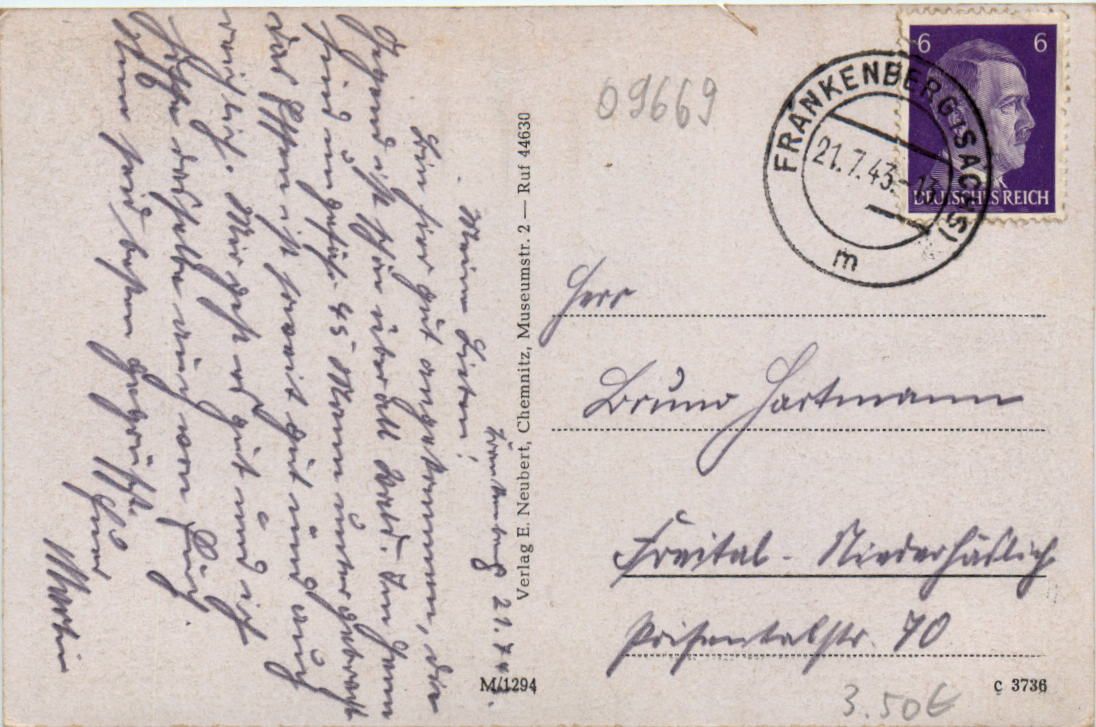 Frankenberg 21.7.4
Meine Lieben!
Bin hier gut angekommen, die
Gegend ist schön überall Wald. Im Heim
sind ungefähr 45 Mann untergebracht
das Essen ist soweit gut und auch
reichlich. Mir geht es gut und ich
hoffe dasselbe auch von Euch.
Nun seid bestens gegrüßt. Euer
Martin
Verlag E. Neubert, Chemnitz, Museumstr. 2 — Ruf 44630
M/1294
09669
FRANKENBERG (SACHS)
21.7.43.-
m
6 6
DEUTSCHES REICH
Herr
Bruno Hartmann
Freital - Niederhäslich
Poisentalstr. 70
3.50€
C 3736